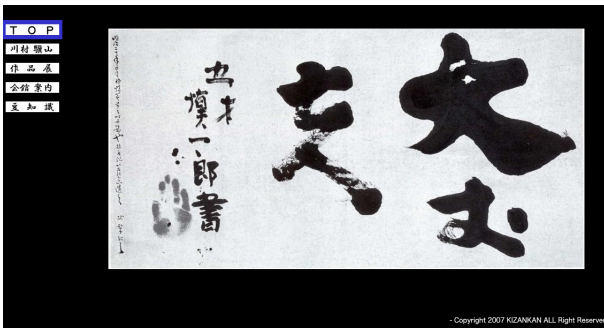 T O P
川村 驥山
作 品 展
会館 案内
豆 知 識
大丈
夫
五才
慎一郎書
- Copyright 2007 KIZANKAN ALL Right Reserve